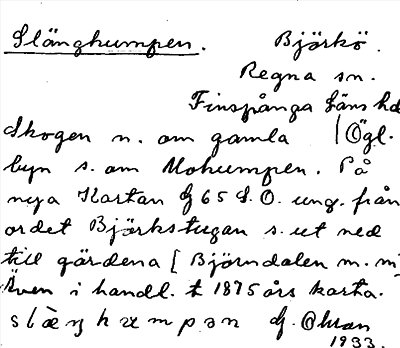 Slänghumpen. Björkö.
Regna sn.
Finspånga läns hd
Skogen n. om gamla / Ögl.
byn s. om Mohumpen. På
nya Kartan 65 S.O. ung. från
ordet Björkstugan s. ut ned
till gärdena [ Björndalen m. m
Även i handl. t 1875 års karta.
1933.